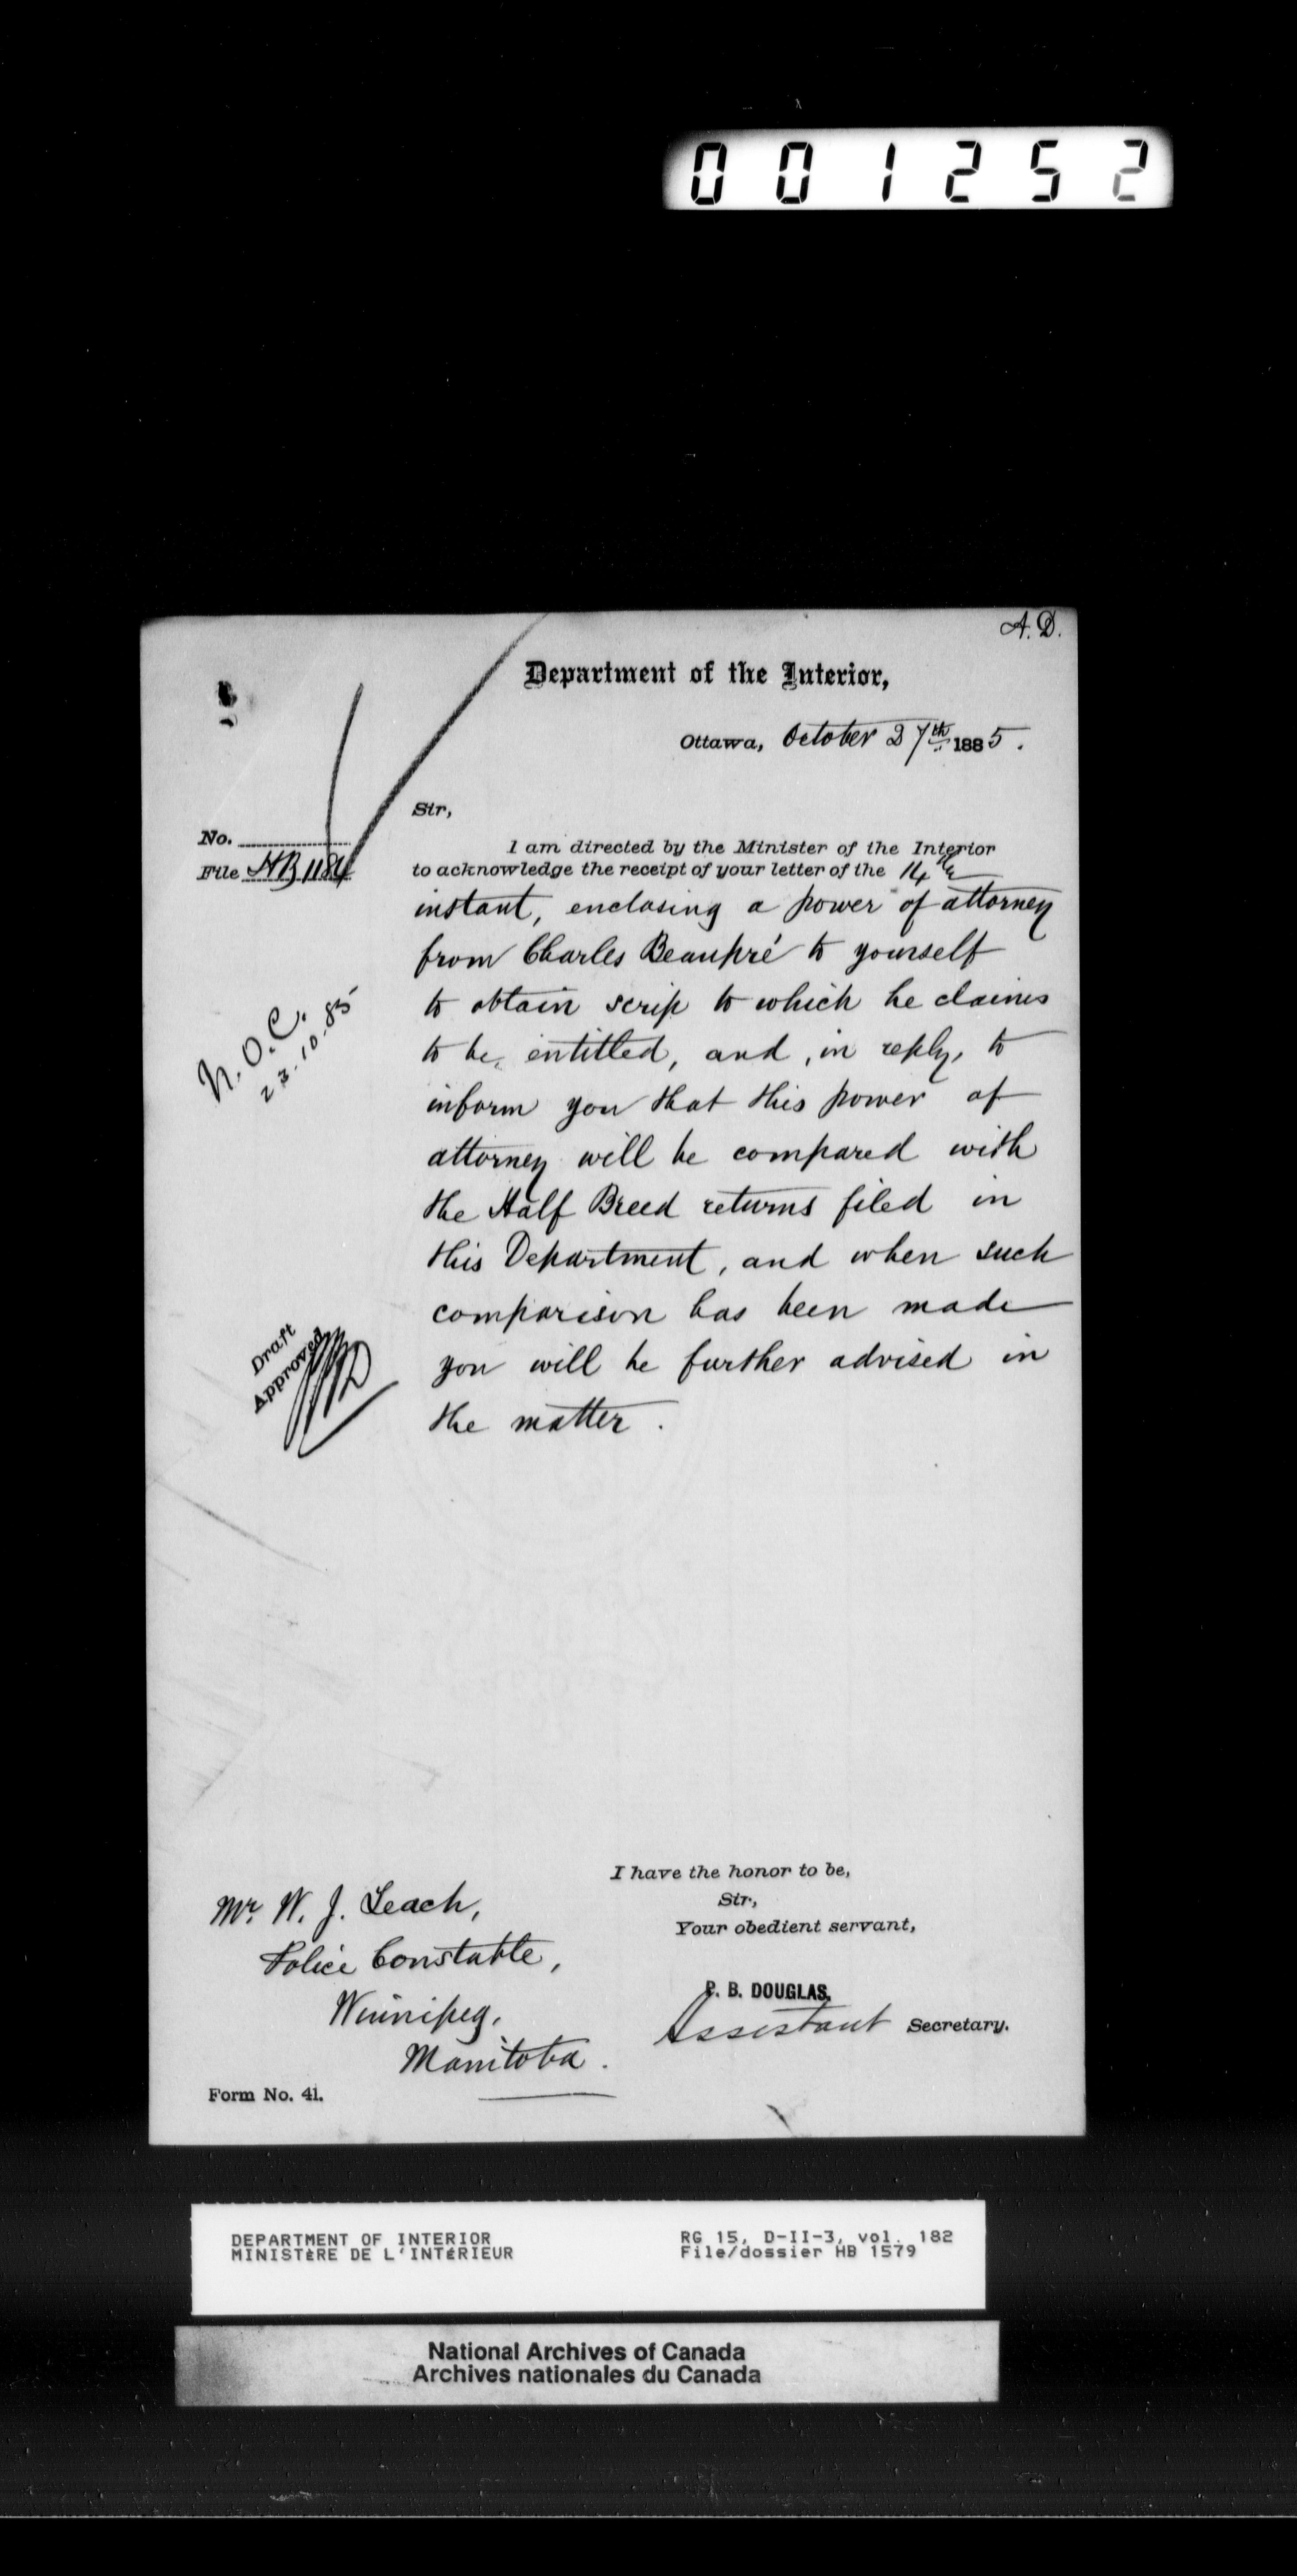 001252
A.D.
Department of the Interior,
Ottawa, October 27th 1885.
Sir,
No.
File HB 1184
I am directed by the Minister of the Interior
to acknowledge the receipt of your letter of the 14th
instant, enclosing a power of attorney
from Charles Beaupré to yourself
to obtain scrip to which he claims
to be, entitled, and, in reply, to
inform you that this power of
attorney will be compared with
the Half Breed returns filed in
this Department, and when such
comparison has been made
you will be further advised in
the matter.
N.O.C.
23.10.85
Draft
Approved
I have the honor to be,
Sir,
Your obedient servant,
P. B. DOUGLAS,
Assistant Secretary.
Mr. W. J. Leach,
Police Constable,
Winnipeg,
Manitoba.
Form No. 41.
DEPARTMENT OF INTERIOR RG 15, D-II-3, vol. 182
MINISTÈRE DE L'INTÉRIEUR File/dossier HB 1579
National Archives of Canada
Archives nationales du Canada